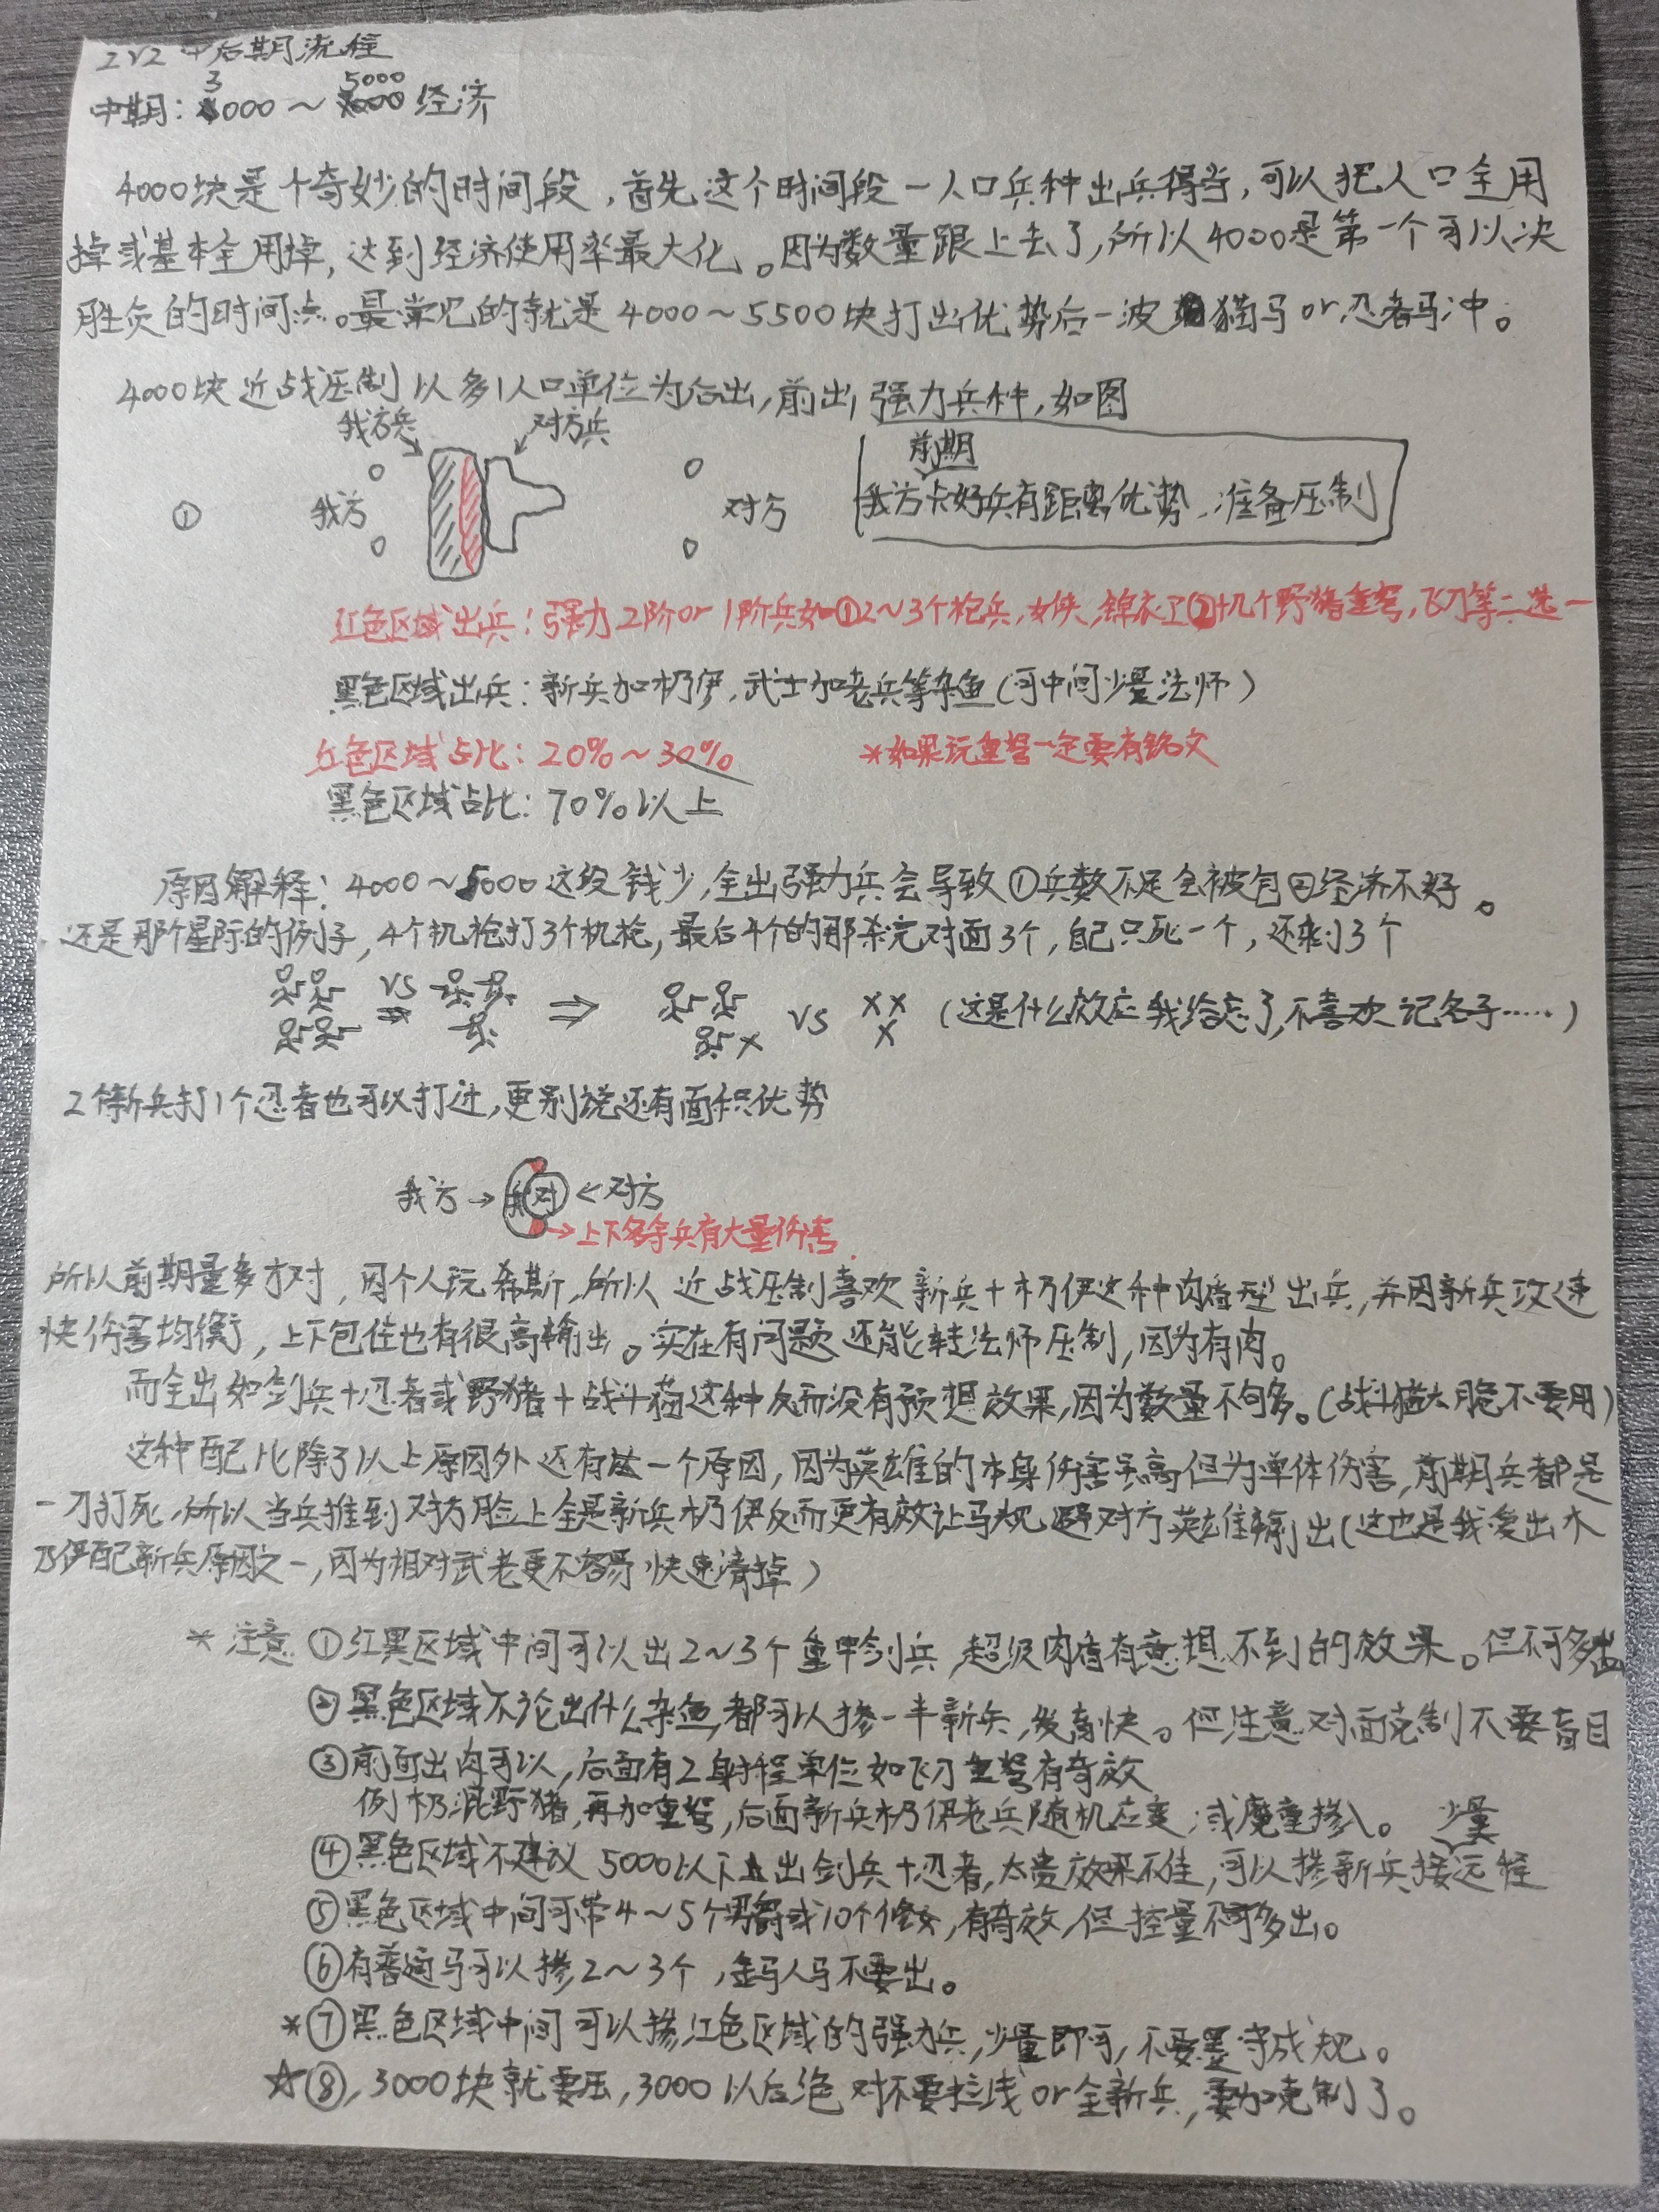 2v2 中后期流程
中期：3000～5000经济
4000块是个奇妙的时间段，首先这个时间段一人口兵种出兵得当，可以把人口全用
掉或基本全用掉，达到经济使用率最大化。因为数量跟上去了，所以4000是第一个可以决
胜负的时间点。最常见的就是4000～5500块打出优势后一波猫马or忍者马冲。
4000块近战压制以多1人口单位为后出，前出强力兵种，如图
我方兵 对方兵
① 我方 对方
前期
我方卡好兵有距离优势，准备压制
红色区域出兵：强力2阶or 1阶兵如①2～3个枪兵，女侠，锦衣卫②十几个野猪重弩，飞刀等二选一
黑色区域出兵：新兵加木乃伊，武士加老兵等杂鱼（可中间少量法师）
红色区域占比：20%～30% *如果玩重弩一定要有铭文
黑色区域占比：70%以上
原因解释：4000～5000这段钱少，全出强力兵会导致①兵数不足会被包②经济不好。
还是那个星际的例子，4个机枪打3个机枪，最后4个的那杀完对面3个，自己只死一个，还剩3个
VS ⇒ VS （这是什么效应我给忘了，不喜欢记名字……）
2个新兵打1个忍者也可以打过，更别说还有面积优势
我方→ 我 对 ←对方
→上下多余兵有大量伤害.
所以前期量多才对，因个人玩希斯，所以近战压制喜欢新兵+木乃伊这种肉盾型出兵，并因新兵攻速
快伤害均衡，上下包住也有很高输出。实在有问题还能转法师压制，因为有肉。
而全出如剑兵+忍者或野猪+战斗猫这种反而没有预想效果，因为数量不句多。（战斗猫太脆不要用）
这种配比除了以上原因外还有一个原因，因为英雄的本身伤害高但为单体伤害，前期兵都是
一刀打死，所以当兵推到对方脸上全是新兵木乃伊反而更有效让马规避对方英雄输出（这也是我爱出木
乃伊配新兵原因之一，因为相对武老更不容易快速清掉）
* 注意 ①红黑区域中间可以出2～3个重甲剑兵，超级肉盾有意想不到的效果。但不可多出
②黑色区域不论出什么杂鱼，都可以掺一半新兵，发育快。但注意对面克制不要盲目
③前面出肉可以，后面有2射程单位如飞刀重弩有奇效
例木乃混野猪，再加重弩，后面新兵木乃伊老兵随机应变；或魔童掺入。 少量
④黑色区域不建议5000以下出剑兵+忍者，太贵效果不佳，可以掺新兵接远程
⑤黑色区域中间可带4～5个男爵或10个修女，有奇效，但控量不可多出。
⑥有普通马可以掺2～3个，金马人马不要出。
*⑦黑色区域中间可以掺红色区域的强力兵，少量即可，不要墨守成规。
☆⑧，3000块就要压，3000以后绝对不要拦线or全新兵，要加克制了。